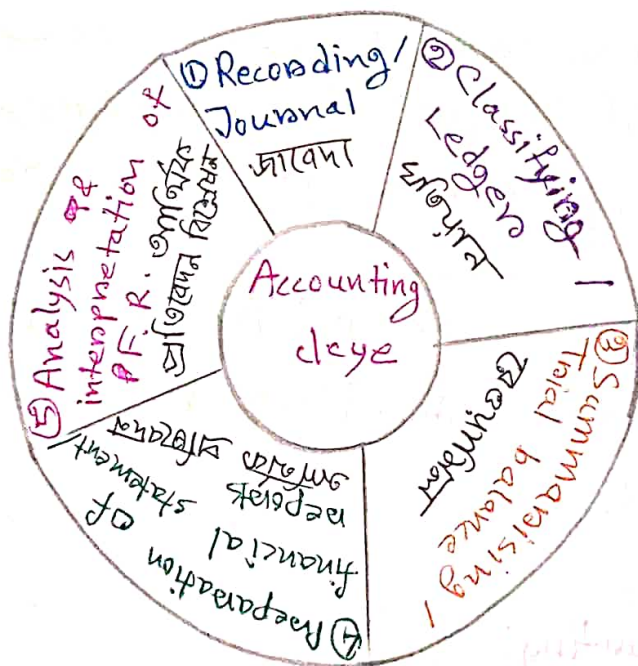 Accounting
cleye
① Recording/
Journal
জাবেদা
② Classifying /
Ledger
খতিয়ান
③ Summarising /
Trial balance
রেওয়ামিল
④ Preparation of
financial statement/
reports
আর্থিক প্রতিবেদন
⑤ Analysis of
interpretation of
F.R. আর্থিক
প্রতিবেদন বিশ্লেষণ